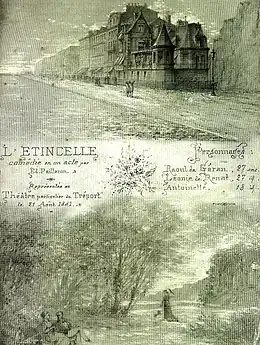 L'ETINCELLE
comédie en un acte par
Ed. Pailleron.
Représentée au
Théâtre particulier du Tréport
le 21 Août 1881.
Personnages:
Raoul de Géran, 27 ans.
Léonie de Renat, 27 d.
Antoinette, 18 d.